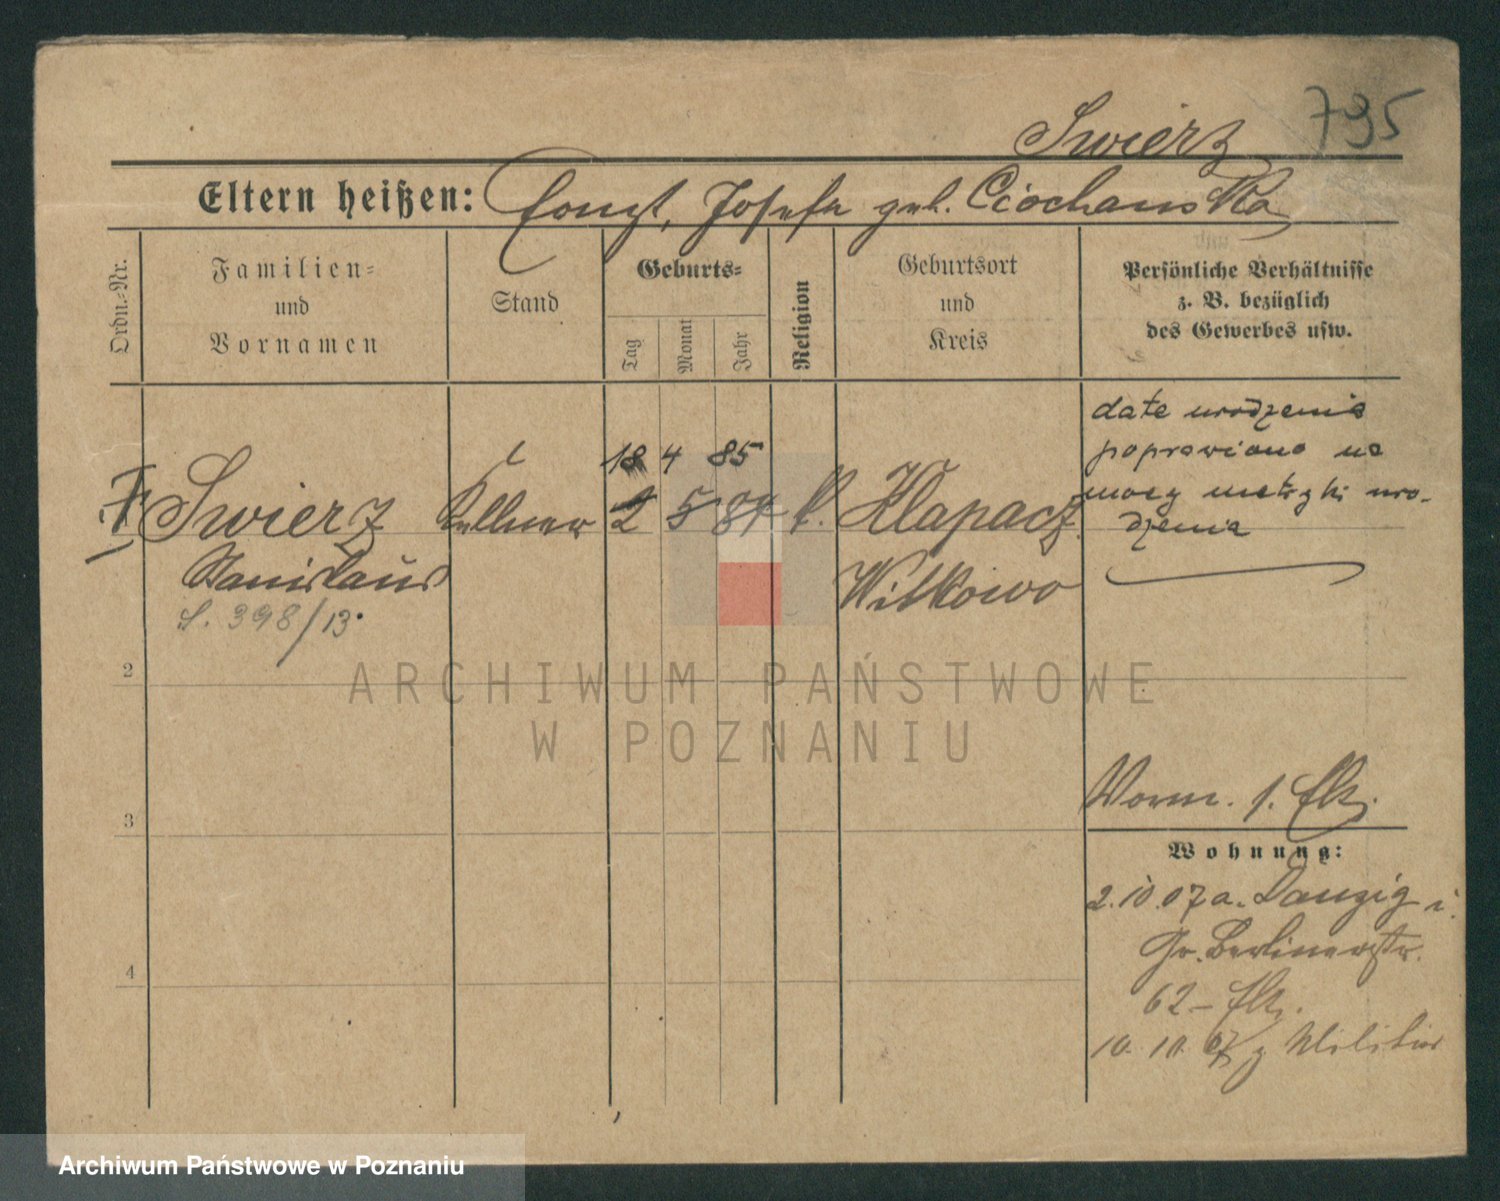 795
Swierz
Eltern heißen: Josefa geb. Ciochanska
Ordn.-Nr.
Familien-
und
Vornamen
Stand
Geburts-
Tag
Monat
Jahr
Religion
Geburtsort
und
Kreis
Persönliche Verhältnisse
z. B. bezüglich
des Gewerbes usw.
date urodzenia
poprawiono na
mocy metryki uro-
dzenia
18 4 85
Swierz Kellner 2 5 84 k. Klapacz
Stanislaus Witkowo
S. 398/13.
2
ARCHIWUM PAŃSTWOWE
W POZNANIU
Worm. 1. Flk.
3
Wohnung:
2.10.07 a. Danzig i.
Gr. Berlinerstr.
62 - Flk.
4
10. 10. 07 z Militär
Archiwum Państwowe w Poznaniu